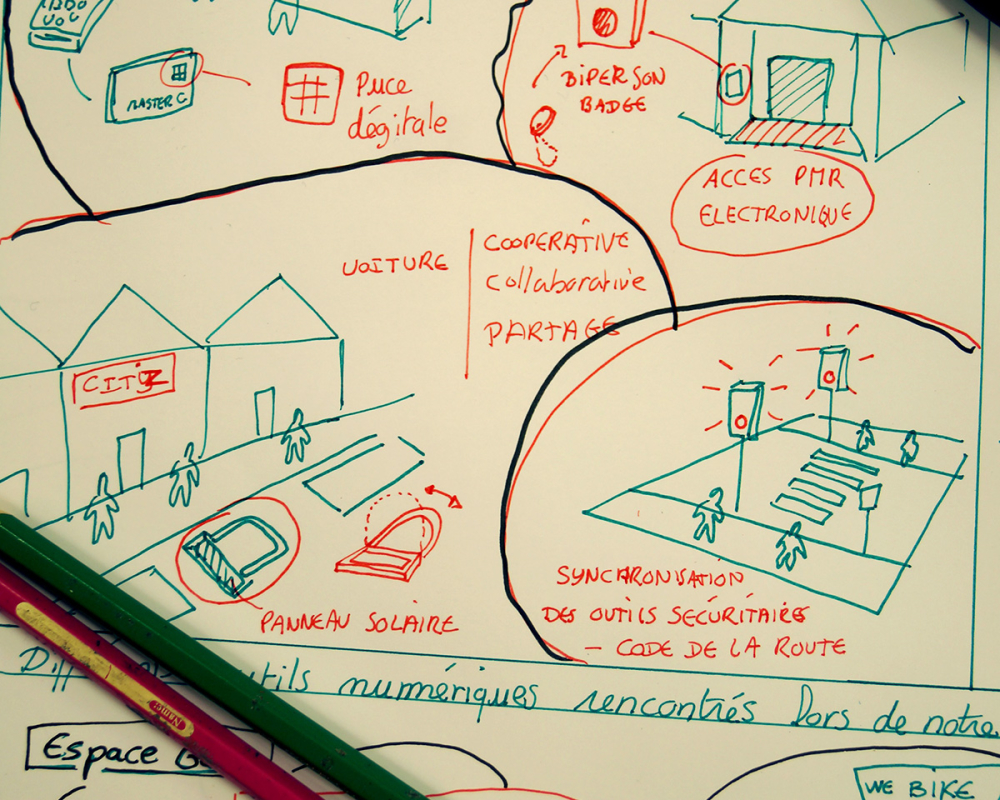 MASTER C
Puce
dégitale
BIPER SON
BADGE
ACCES PMR
ELECTRONIQUE
VOITURE
COOPERATIVE
Collaborative
PARTAGE
CITIZ
PANNEAU SOLAIRE
SYNCHRONISATION
DES OUTILS SECÚRITAIRES
- CODE DE LA ROUTE
numériques rencontrés lors de notre
Espace
WE BIKE